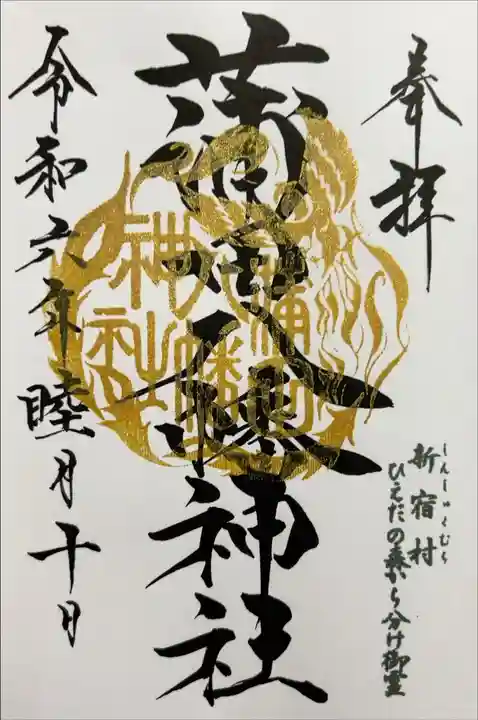 奉拝
新宿村
しんしゅくむら
ひえだの森から分け御霊
蒲田八幡神社
令和六年睦月十日
蒲田
八幡
神社